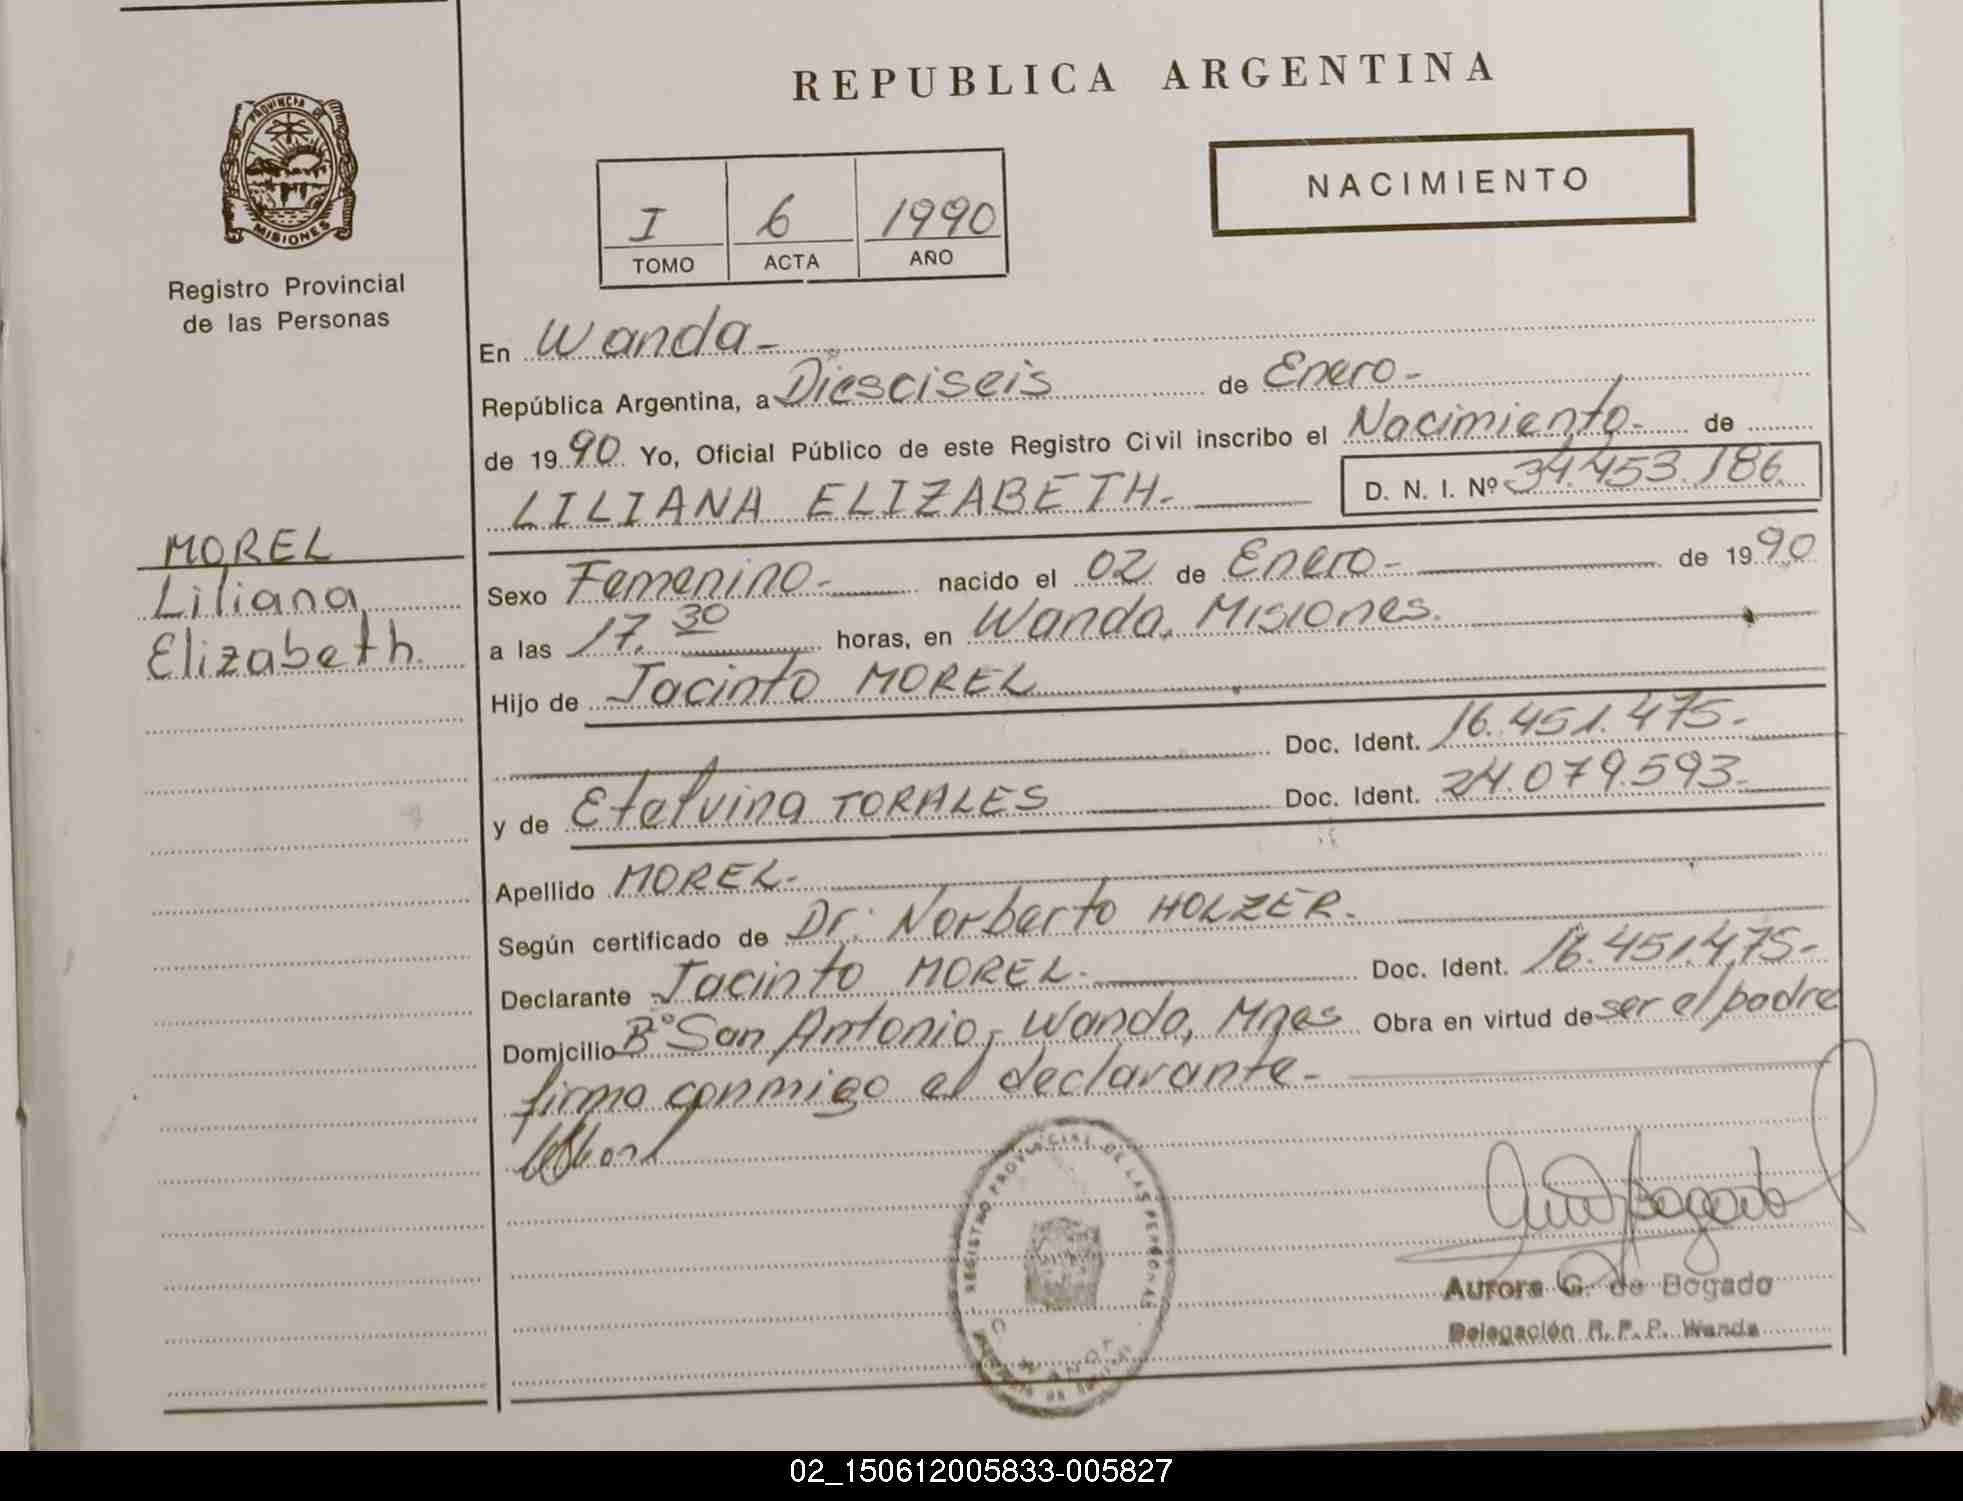 REPUBLICA ARGENTINA
PROVINCIA DE
MISIONES
Registro Provincial
de las Personas
NACIMIENTO
I 6 1990
TOMO ACTA AÑO
En Wanda-
República Argentina, a Diesciseis de Enero-
de 1990 Yo, Oficial Público de este Registro Civil inscribo el Nacimiento- de
LILIANA ELIZABETH- D. N. I. Nº 34.453.186
MOREL
Liliana
Elizabeth.
Sexo Femenino- nacido el 02 de Enero- de 1990
a las 17.30 horas, en Wanda, Misiones.
Hijo de Jacinto MOREL
Doc. Ident. 16.451.475-
y de Etelvina TORALES Doc. Ident. 24.079.593-
Apellido MOREL-
Según certificado de Dr. Norberto HOLZER-
Declarante Jacinto MOREL- Doc. Ident. 16.451.475-
Domicilio Bº San Antonio, Wanda, Mnes Obra en virtud de ser el padre
firma conmigo el declarante-
REGISTRO PROVINCIAL DE LAS PERSONAS
Aurora G. de Bogado
Delegación R. P. P. Wanda
02_150612005833-005827